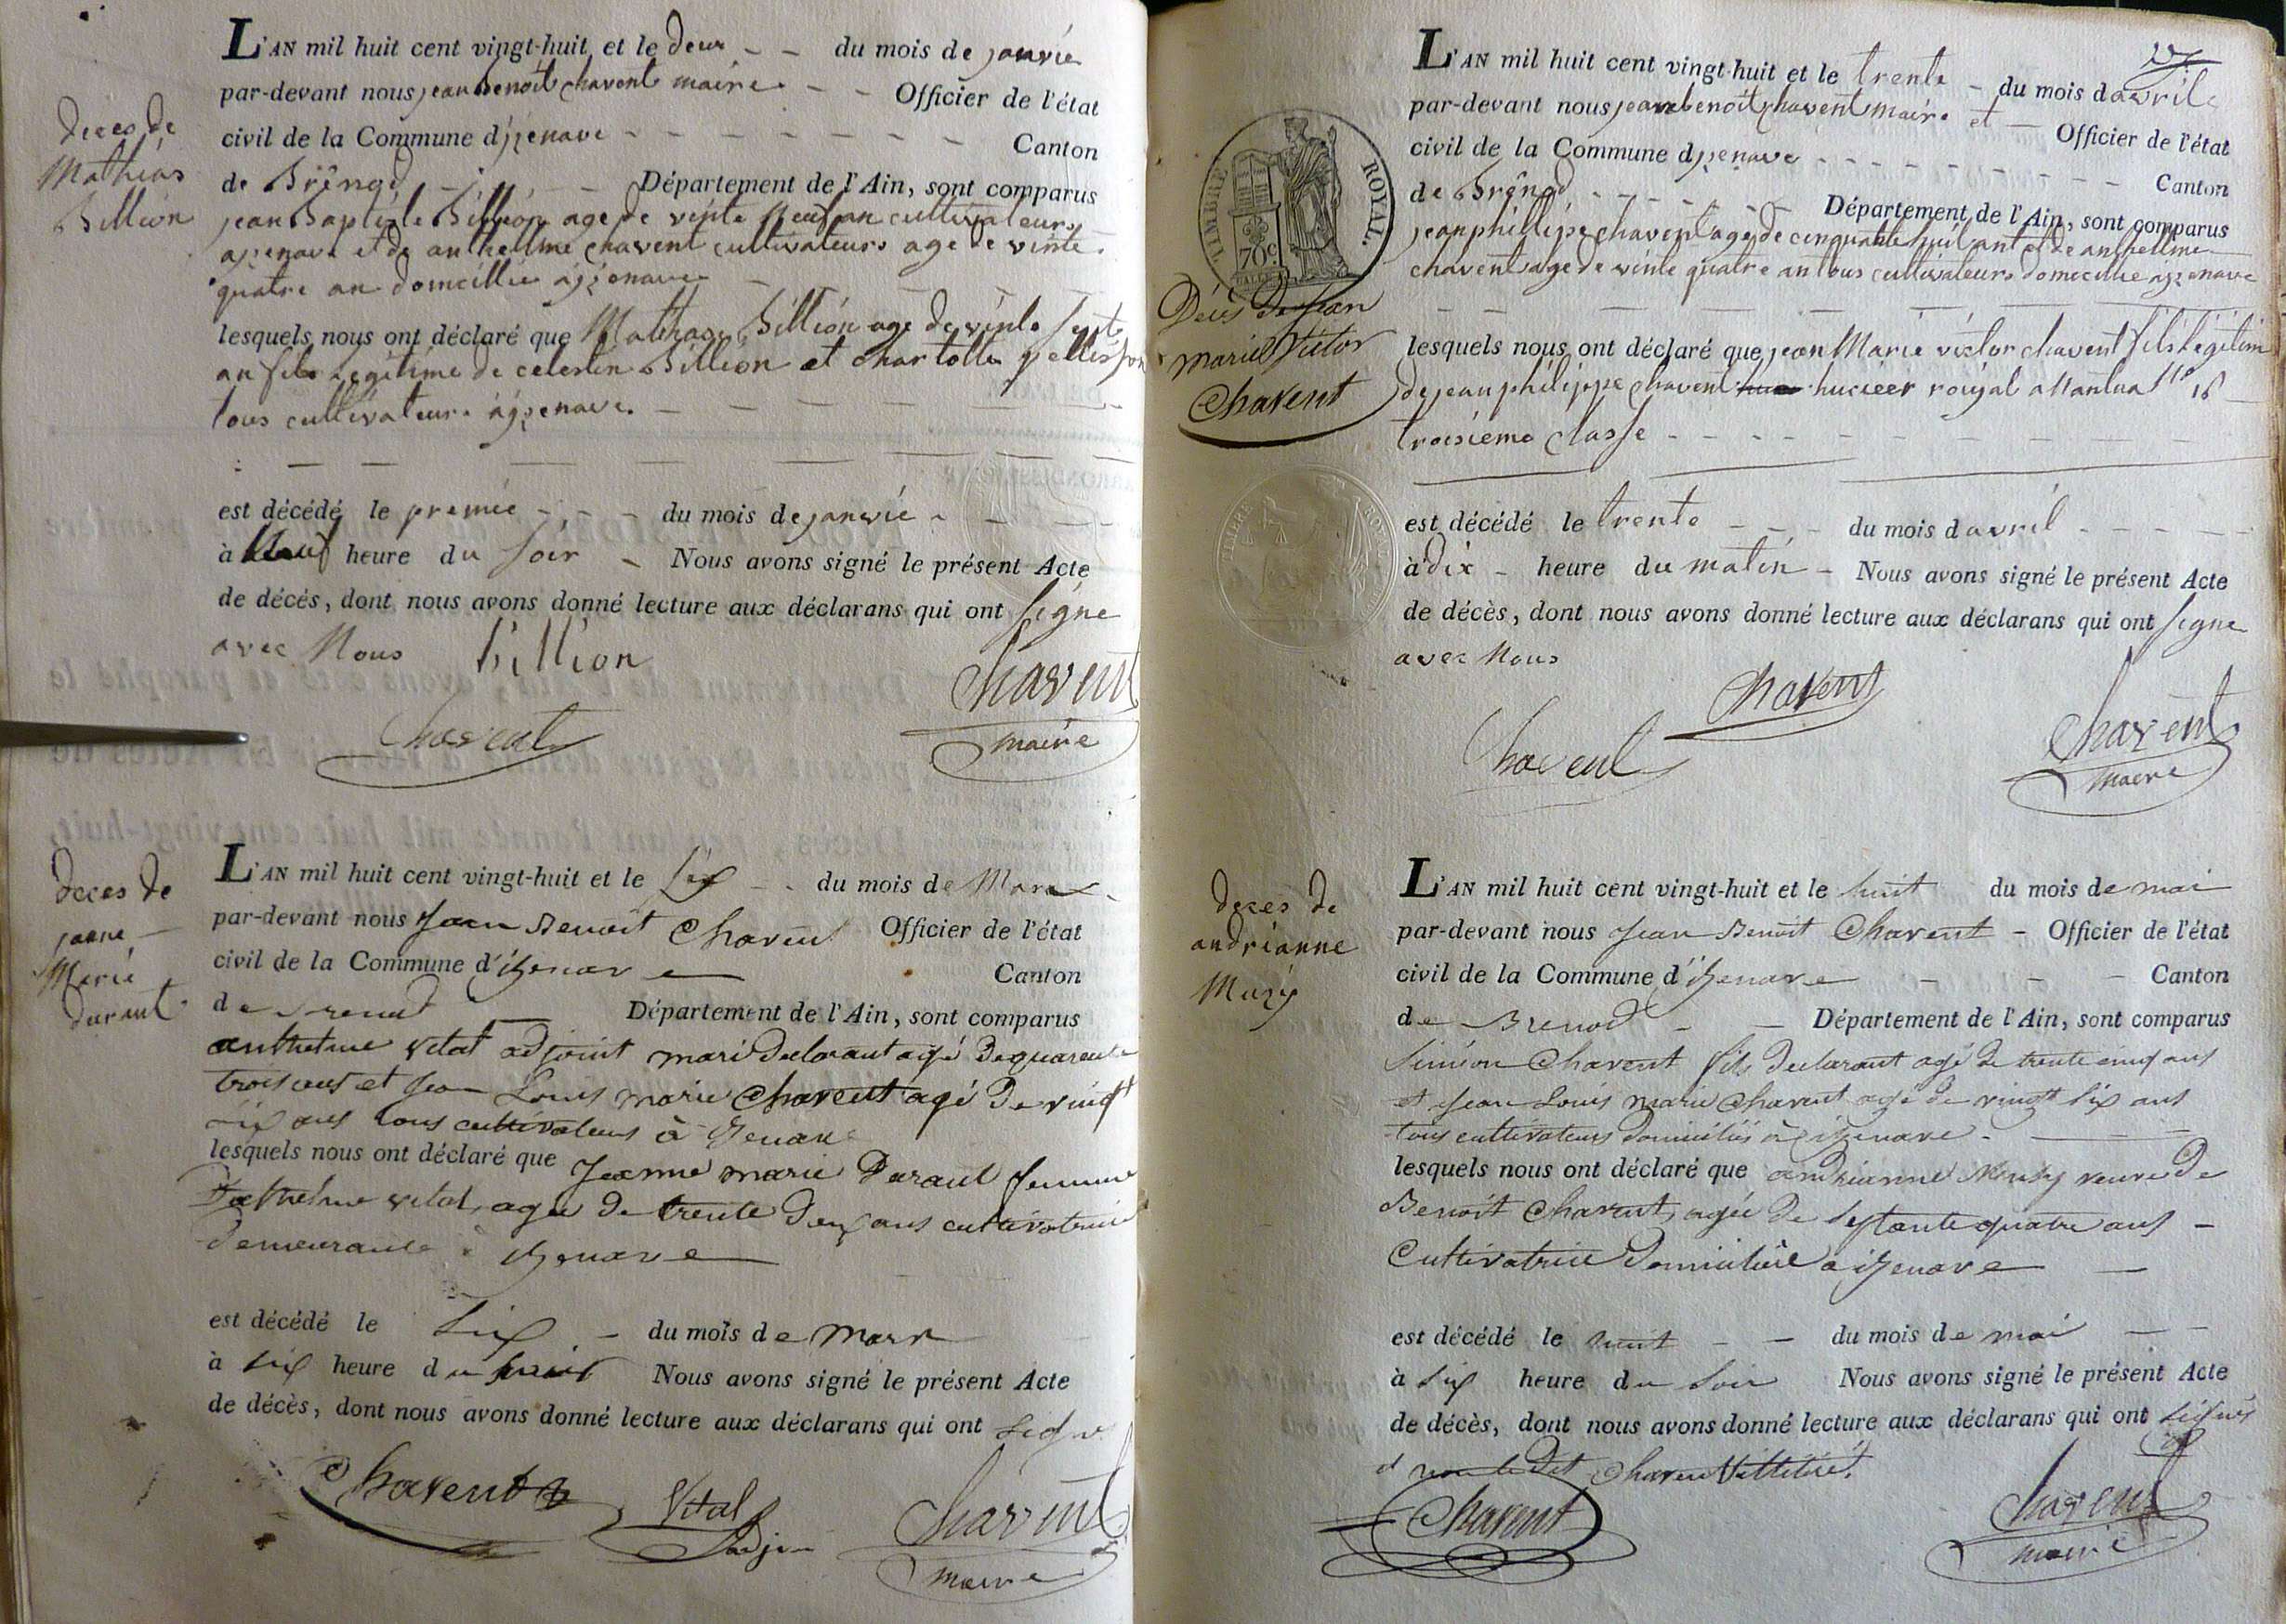 L'AN mil huit cent vingt-huit et le deux du mois de janvié
par-devant nous jean Benoit chavent maire Officier de l'état
civil de la Commune d'izenave Canton
de Brénod Département de l'Ain, sont comparus
jean Baptiste Billion age de vinte neuf an cultivateurs
azenave et de anthellme chavent cultivateurs age de vinte
quatre an domcillie azzenave
lesquels nous ont déclaré que Mathias Billion age de vinte sept
an fils legitime de celestin Billion et charlotte pellisson
tous cultivateurs azzenave
est décédé le premié du mois de janvié
à neuf heure du soir Nous avons signé le présent Acte
de décés, dont nous avons donné lecture aux déclarans qui ont signe
avec Nous billion
chavent
maire
Chavent
deces de
Mathias
Billion
L'AN mil huit cent vingt-huit et le six du mois de Mars
par-devant nous Jean Benoit Chavent Officier de l'état
civil de la Commune d'izenave Canton
de Brenod Département de l'Ain, sont comparus
anthelme vital adjoint mari declarant agé de quarente
trois ans et Jean Louis marie Chavent agé de vingt
six ans tous cultivateurs à izenave
lesquels nous ont déclaré que Jeanne marie Durant femme
D'anthelme vital, agée de trente deux ans cultivatrice
demeurante à izenave
est décédé le six du mois de mars
à six heure du Nous avons signé le présent Acte
de décès, dont nous avons donné lecture aux déclarans qui ont signé
Chavent Vital chavent
adjoin maire
deces de
janne
Marie
durant
L'AN mil huit cent vingt-huit et le trente du mois d avril
par-devant nous jean benoit chavent maire et Officier de l'état
civil de la Commune d'izenave Canton
de Brénod Département de l'Ain, sont comparus
jean phillipe chavent age de cinquante huit ant et de anthellme
chavent age de vinte quatre an tous cultivateurs domecillie azzenave
lesquels nous ont déclaré que jean Marie victor chavent fils legitim
de jean philippe chavent hucieer roiyal a Nantua n° 16
troisieme classe
est décédé le trente du mois d avril
à dix heure du matin Nous avons signé le présent Acte
de décès, dont nous avons donné lecture aux déclarans qui ont signe
avec Nous
Chavent
Chavent
Chavent
maire
TIMBRE ROYAL.
70c
Décès de jean
marie Victor
Chavent
L'AN mil huit cent vingt-huit et le huit du mois de mai
par-devant nous Jean Benoit Chavent Officier de l'état
civil de la Commune d'izenave Canton
de Brenod Département de l'Ain, sont comparus
Siméon Chavent fils declarant agé de trente cinq ans
et Jean Louis marie Chavent agé de vingt six ans
tous cultivateurs domiciliés à izenave
lesquels nous ont déclaré que andrianne veuve de
Benoit Chavent, agée de septante quatre ans
Cultivatrice domiciliée a izenave
est décédé le huit du mois de mai
à six heure du soir Nous avons signé le présent Acte
de décès, dont nous avons donné lecture aux déclarans qui ont signés
Chavent
Chavent
maire
deces de
andrianne